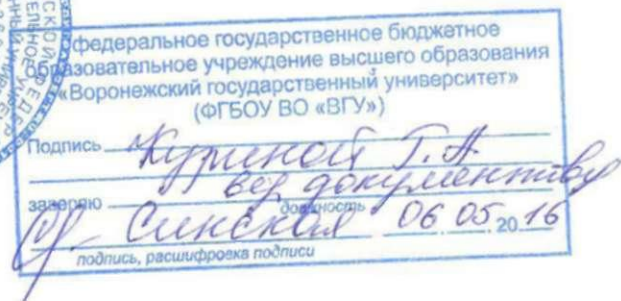 федеральное государственное бюджетное
образовательное учреждение высшего образования
«Воронежский государственный университет»
(ФГБОУ ВО «ВГУ»)
Подпись Куриной Г.А.
заверяю вед документовед
должность
Синская 06 05 2016
подпись, расшифровка подписи